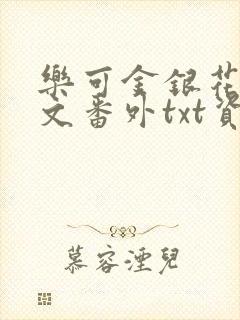 樂可金銀花
文番外txt資
慕容湮兒